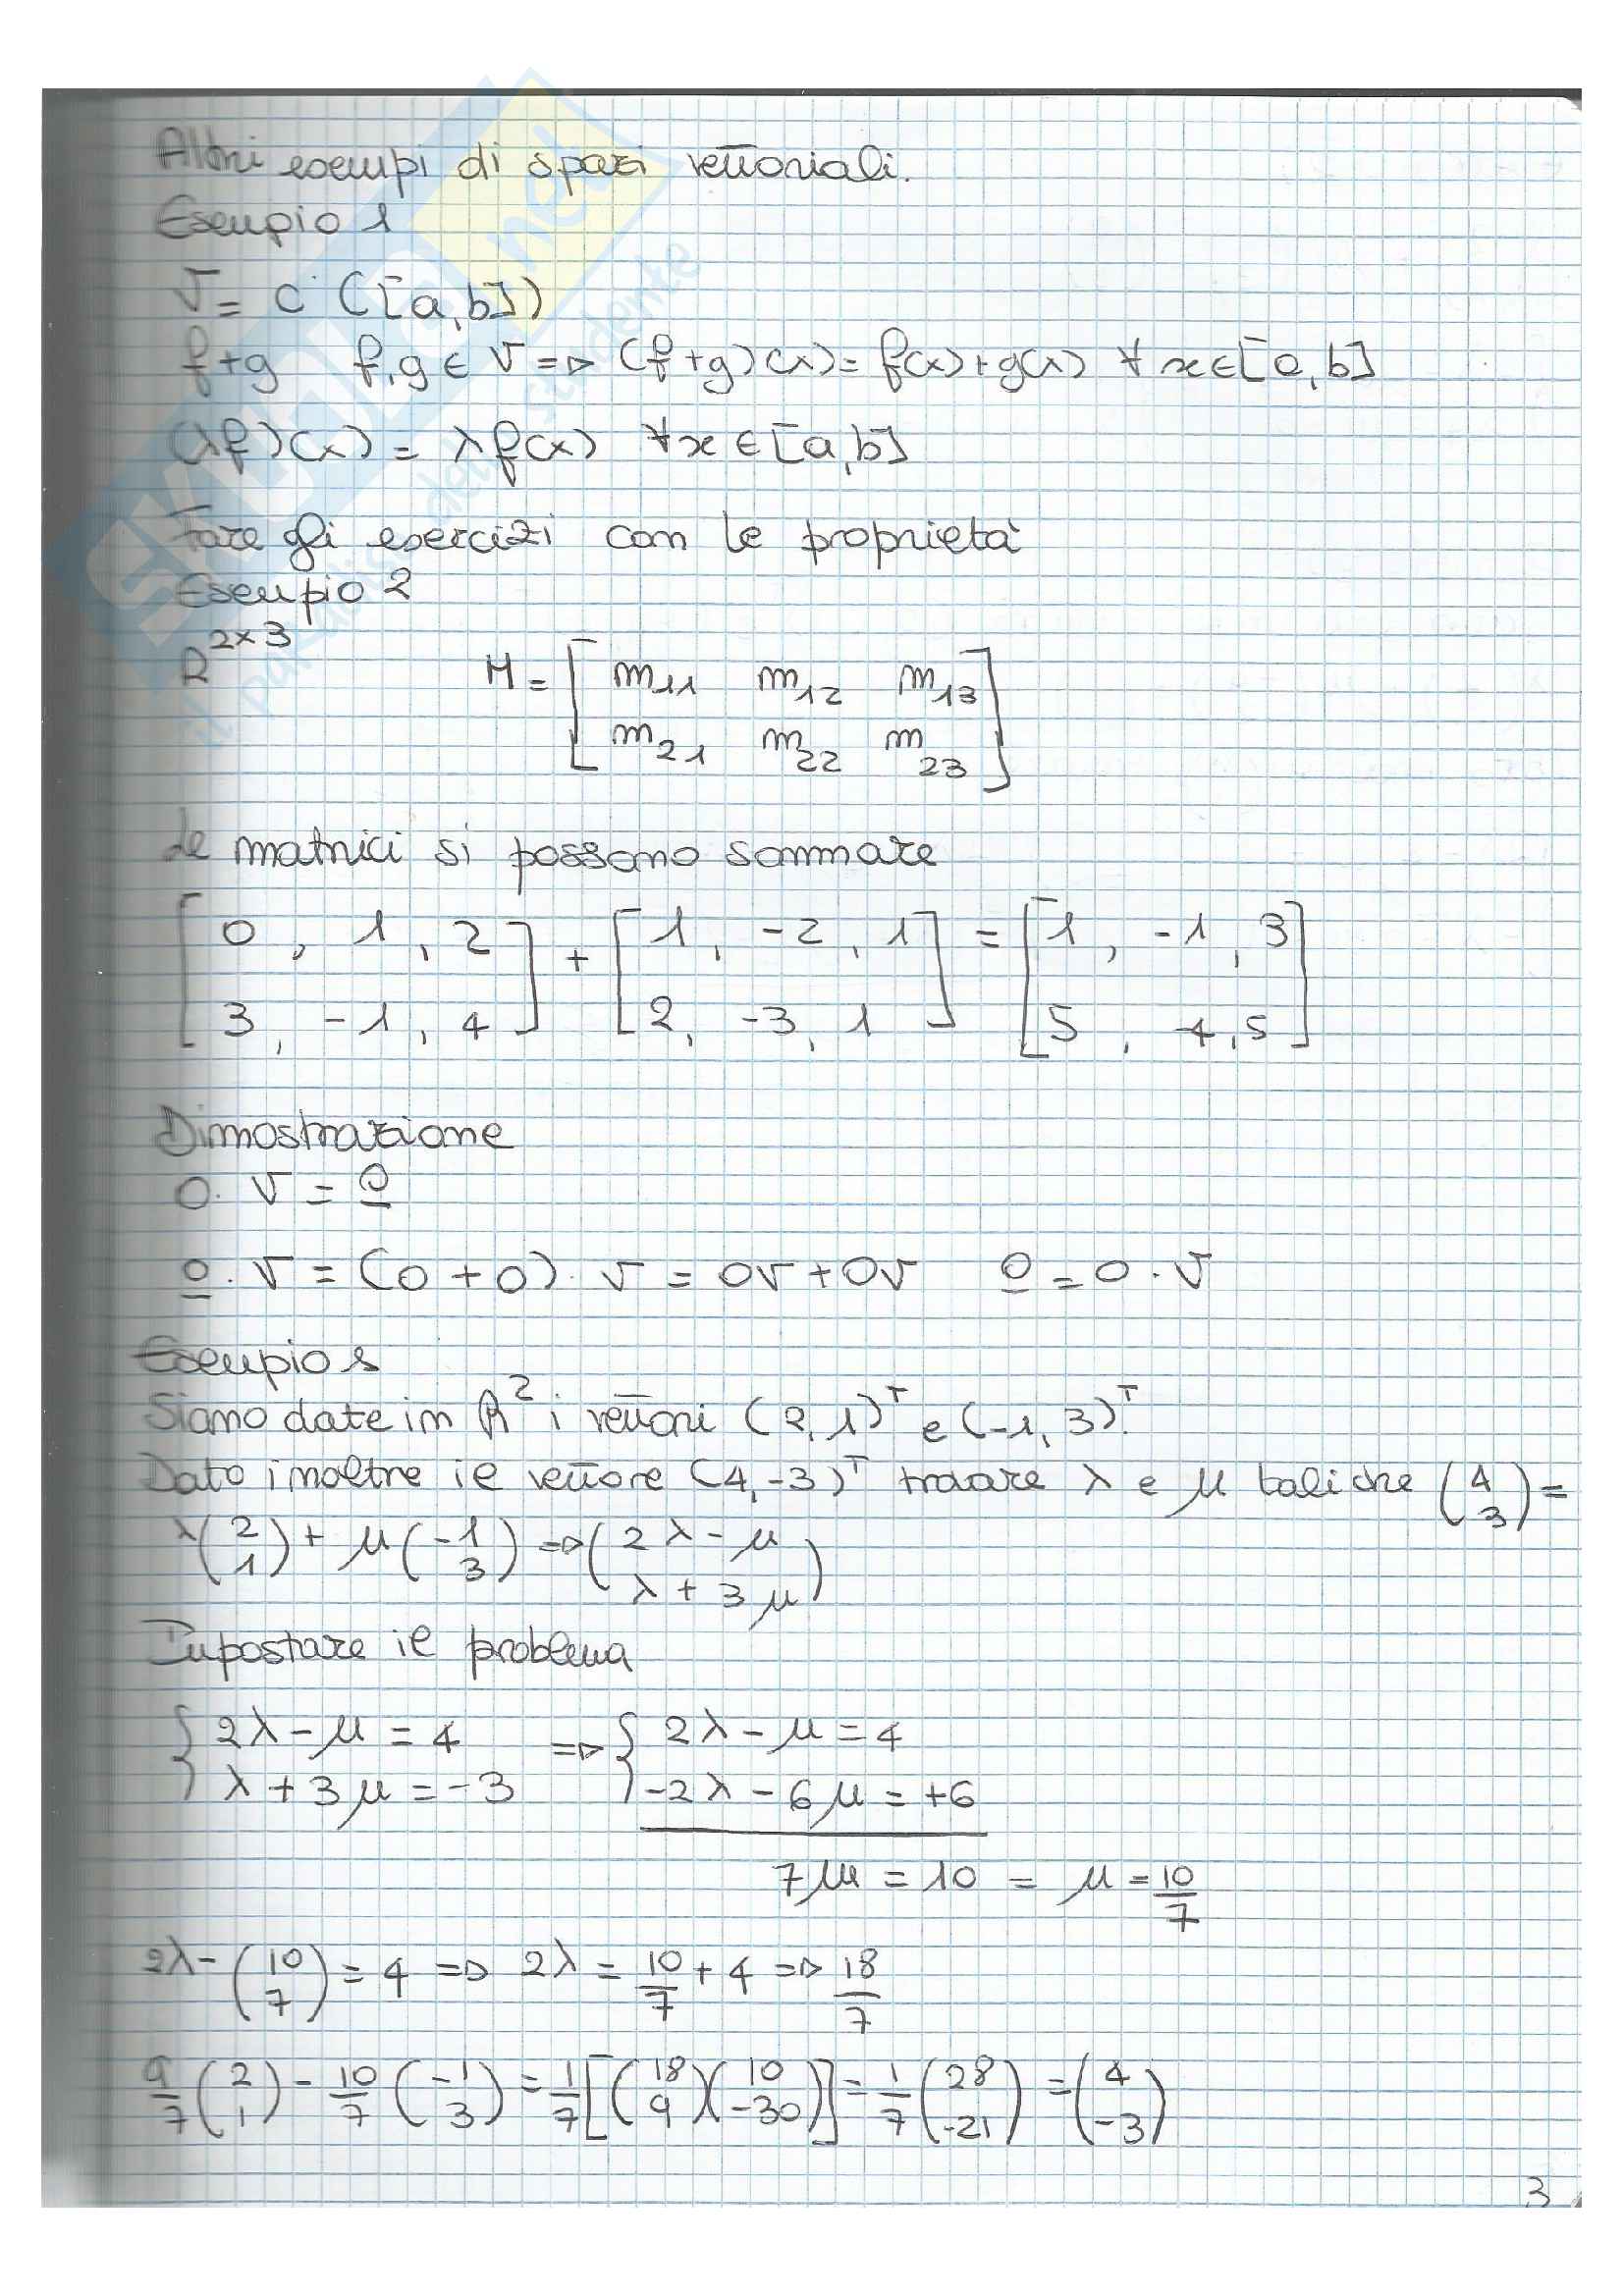 Altri esempi di spazi vettoriali.
Esempio 1
V = C ([a,b])
f+g f,g ∈ V => (f+g)(x) = f(x)+g(x) ∀ x∈[a,b]
(λf)(x) = λf(x) ∀x∈[a,b]
Fare gli esercizi con le proprietà
Esempio 2
R^2×3 M = [ m11 m12 m13
m21 m22 m23 ]
Le matrici si possono sommare
[ 0 , 1 , 2 ] + [ 1 , -2 , 1 ] = [ 1 , -1 , 3 ]
[ 3 , -1 , 4 ] [ 2, -3, 1 ] [ 5 , -4, 5 ]
Dimostrazione
0. v = 0
0. v = (0+0). v = 0v+0v 0 = 0 . v
Esempio 1
Siano date in R^2 i vettori (2,1)^T e (-1,3)^T.
Dato inoltre il vettore (4,-3)^T trovare λ e μ tali che (4 3) =
λ(2 1) + μ(-1 3) => (2λ-μ
λ+3μ)
Impostare il problema
{ 2λ-μ = 4 => { 2λ-μ = 4
λ+3μ = -3 -2λ-6μ = +6
7μ = 10 = μ = 10/7
2λ-(10/7) = 4 => 2λ = 10/7 + 4 => 18/7
9/7 (2 1) - 10/7 (-1 3) = 1/7 [(18 9)(10 -30)] = 1/7 (28 -21) = (4 -3)
3
SKUOLA.net
il paradiso dello studente